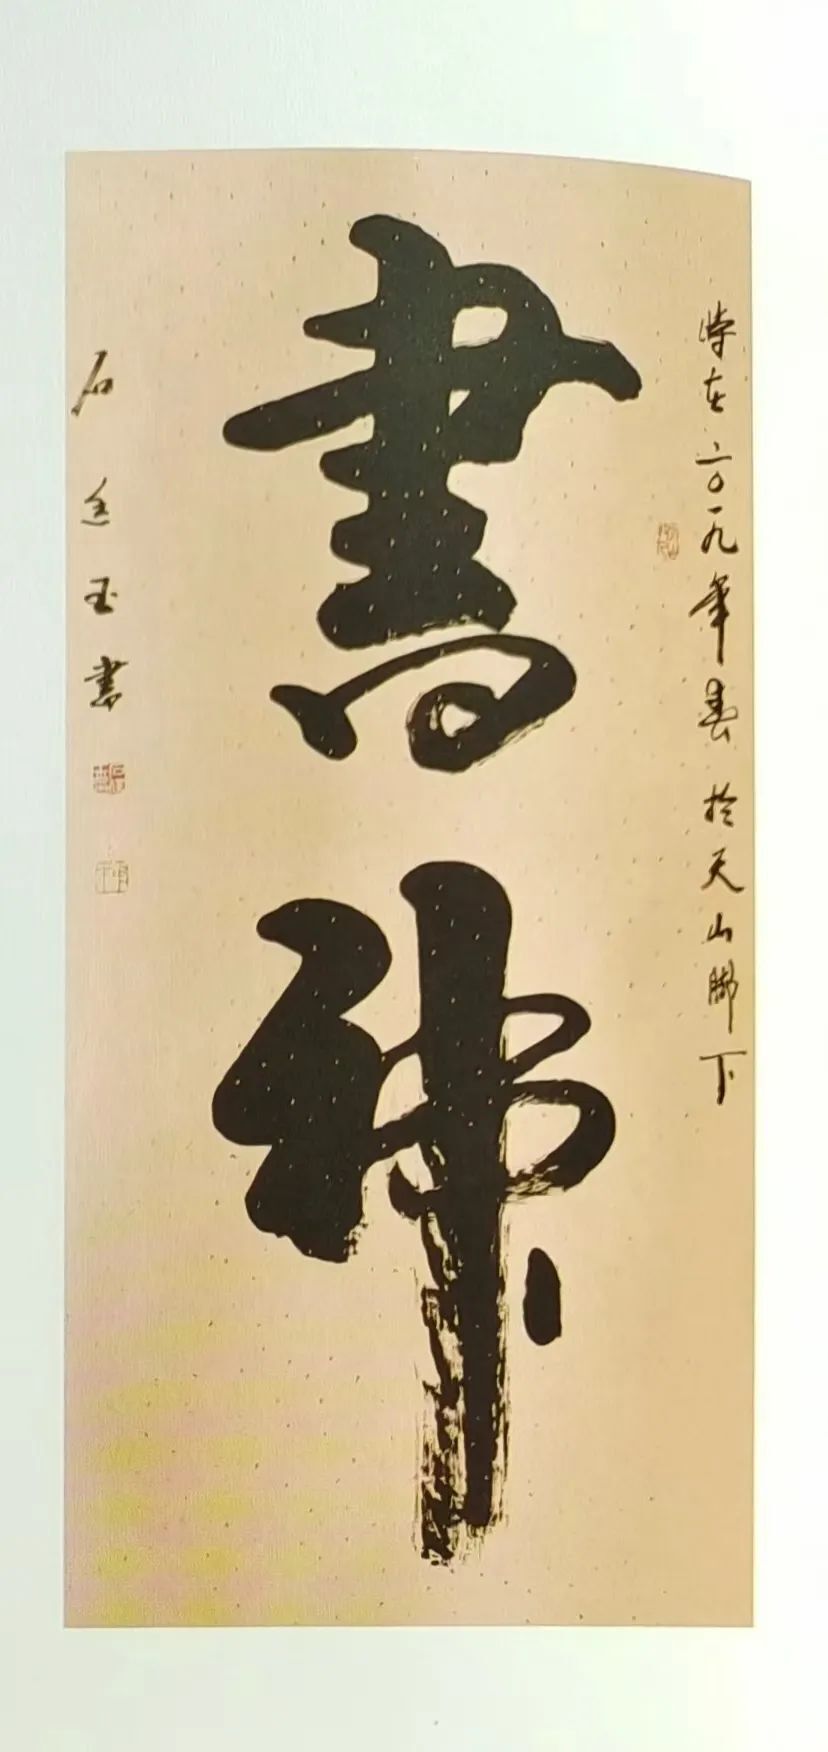 時在二〇一九年春於天山脚下
書神
石玉書